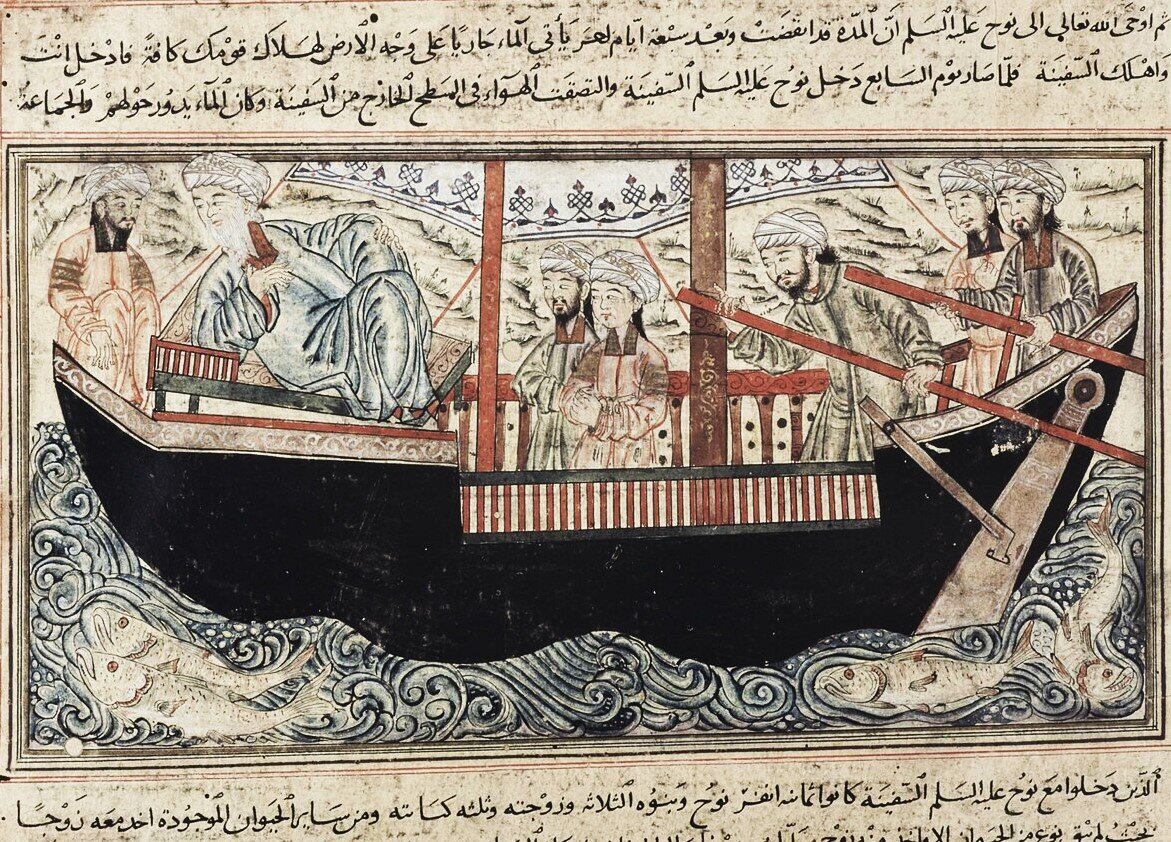 ثم اوحى الله تعالى الى نوح عليه السلم ان المدة قد انقضت وبعد سبعة ايام اخر يأتي الماء جاريا على وجه الارض لهلاك قومك كافة فادخل انت
واهلك السفينة فلما صار يوم السابع دخل نوح عليه السلم السفينة والتصقت الهواء في السطح الخارج من السفينة وكان الماء يدور حولهم والجماعة
الذين دخلوا مع نوح عليه السلم السفينة كانوا ثمانية انفر نوح وبنوه الثلاثة وزوجته وثلثه كناته ومن ساير الحيوان الموجودة اخذ معه زوجا